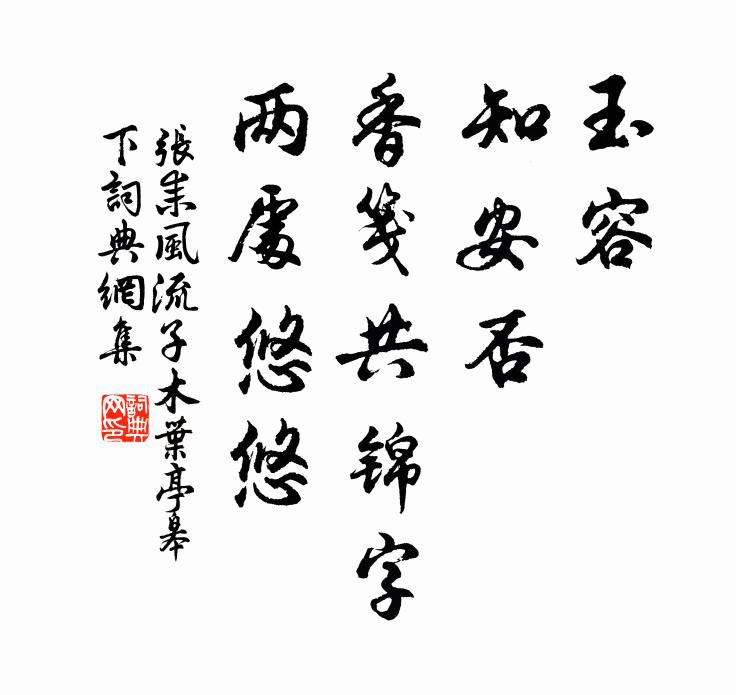 玉容
知安否
香箋共锦字
两處悠悠
張耒風流子木葉亭皋
下詞典網集
詞典
网印